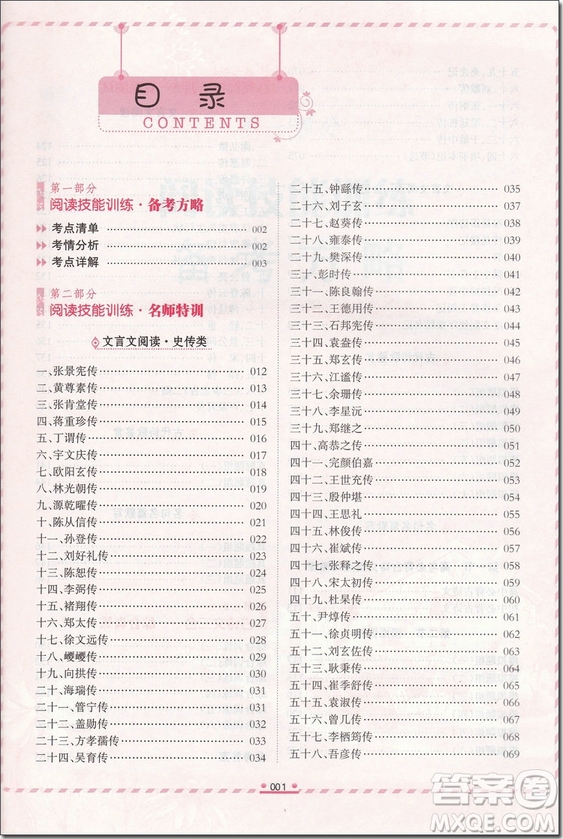 目录
CONTENTS
第一部分
阅读技能训练·备考方略
考点清单 002
考情分析 002
考点详解 003
第二部分
阅读技能训练·名师特训
文言文阅读·史传类
一、张景宪传 012
二、黄尊素传 013
三、张肯堂传 014
四、蒋重珍传 015
五、丁谓传 016
六、宇文庆传 017
七、欧阳玄传 018
八、林光朝传 019
九、源乾曜传 020
十、陈从信传 021
十一、孙登传 022
十二、刘好礼传 023
十三、陈恕传 024
十四、李弼传 025
十五、褚翔传 026
十六、郑太传 027
十七、徐文远传 028
十八、巙巙传 029
十九、向拱传 030
二十、海瑞传 031
二十一、管宁传 031
二十二、盖勋传 032
二十三、方孝孺传 033
二十四、吴育传 034
二十五、钟繇传 035
二十六、刘子玄 036
二十七、赵葵传 037
二十八、雍泰传 038
二十九、樊深传 039
三十、彭时传 040
三十一、陈良翰传 041
三十二、王德用传 042
三十三、石邦宪传 043
三十四、袁盎传 044
三十五、郑玄传 045
三十六、江谧传 046
三十七、余珊传 047
三十八、李星沅 048
三十九、郑继之 049
四十、高恭之传 051
四十一、完颜伯嘉 052
四十二、王世充传 053
四十三、殷仲堪 054
四十四、王思礼 055
四十五、林俊传 056
四十六、崔斌传 057
四十七、张释之传 057
四十八、宋太初传 058
四十九、杜杲传 059
五十、尹焞传 060
五十一、徐贞明传 061
五十二、刘玄佐传 062
五十三、耿秉传 063
五十四、崔季舒传 064
五十五、袁淑传 065
五十六、曾几传 067
五十七、李栖筠传 068
五十八、吾彦传 069
001
答案圈
MXQE.COM